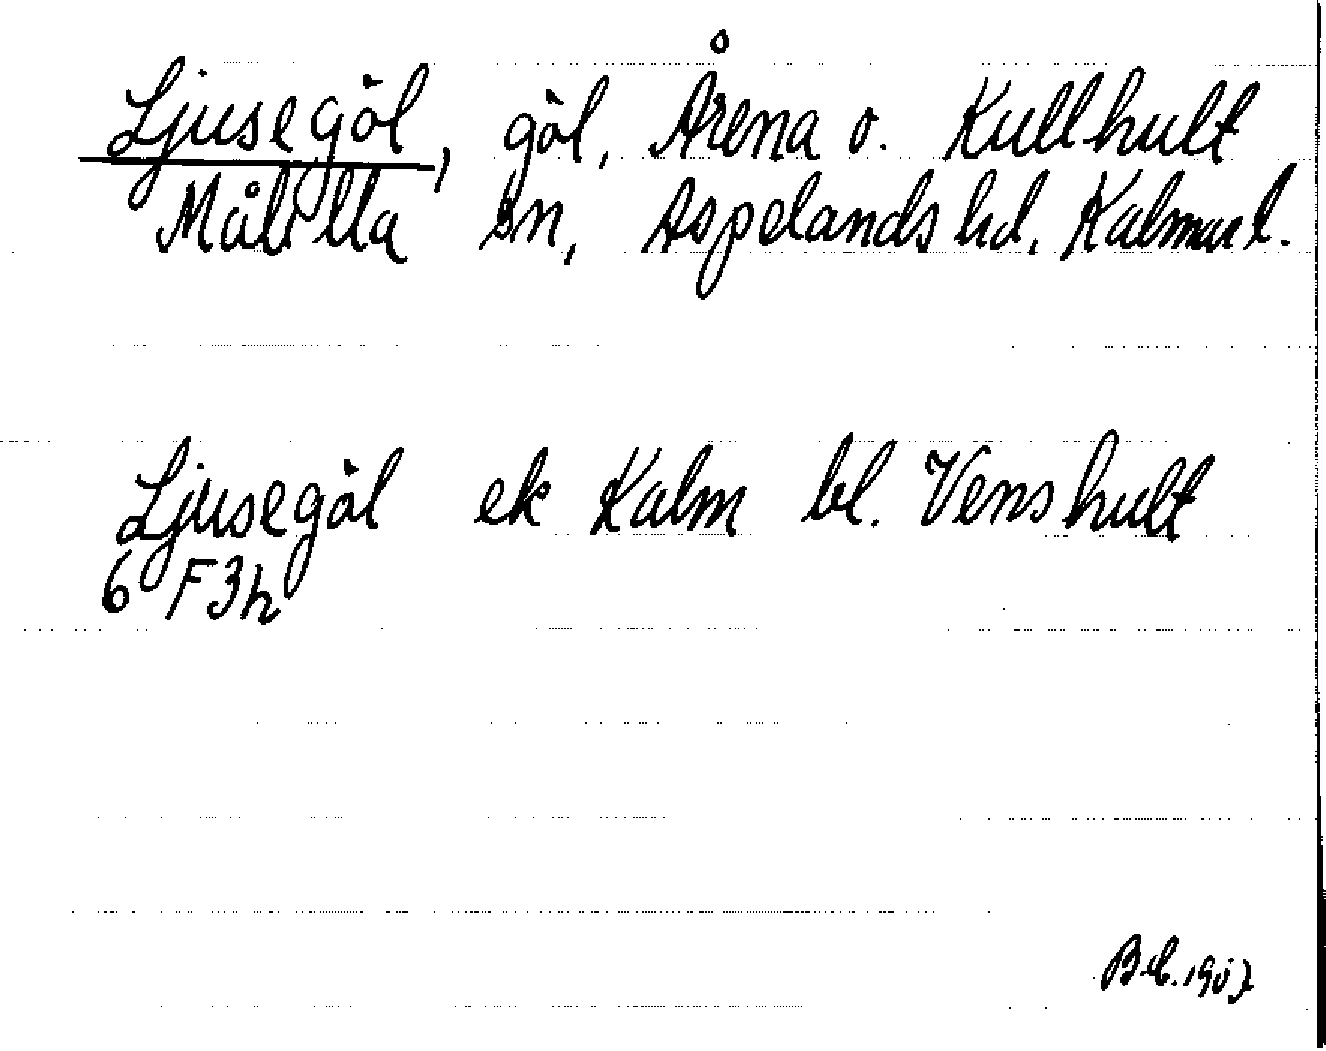 Ljusegöl, göl, Årena o. Kullhult
Målilla sn, Aspelands hd, Kalmar l.
Ljusegöl ek Kalm bl. Venshult
6 F3h